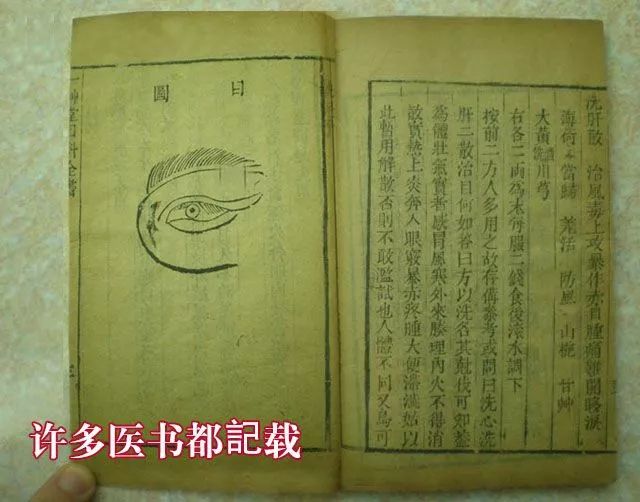 洗肝散 治風毒上攻暴作赤目腫痛難開眵淚
薄荷 當歸 羌活 防風 山梔 甘艸
大黃 川芎
右各二兩為末每服二錢食後滾水調下
按前二方人多用之故存備參考或問曰洗心洗
肝二散治目何如答曰方以洗名其尅伐可知蓋
為體壯氣實者感冒風寒外來腠理內火不得消
散實熱上炎奔入眼竅暴赤疼腫大便濇滯始以
此暫用解散否則不敢濫試也人體不同又烏可
目圖
一艸亭目科全書
许多医书都記载